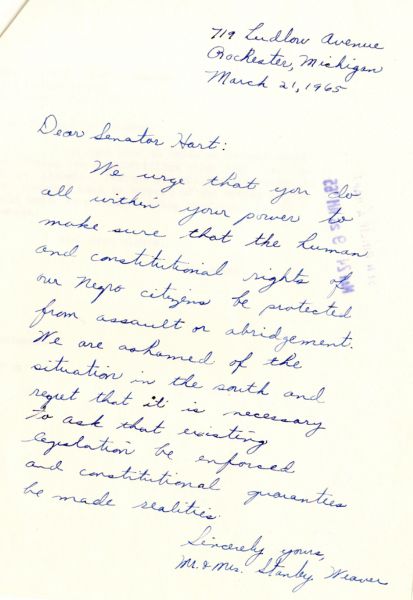 719 Ludlow Avenue
Rochester, Michigan
March 21, 1965
Dear Senator Hart:
We urge that you do
all within your power to
make sure that the human
and constitutional rights of
our Negro citizens be protected
from assault or abridgement.
We are ashamed of the
situation in the south and
regret that it is necessary
to ask that existing
legislation be enforced
and constitutional guaranties
be made realities.
Sincerely yours,
Mr. & Mrs. Stanley Weaver